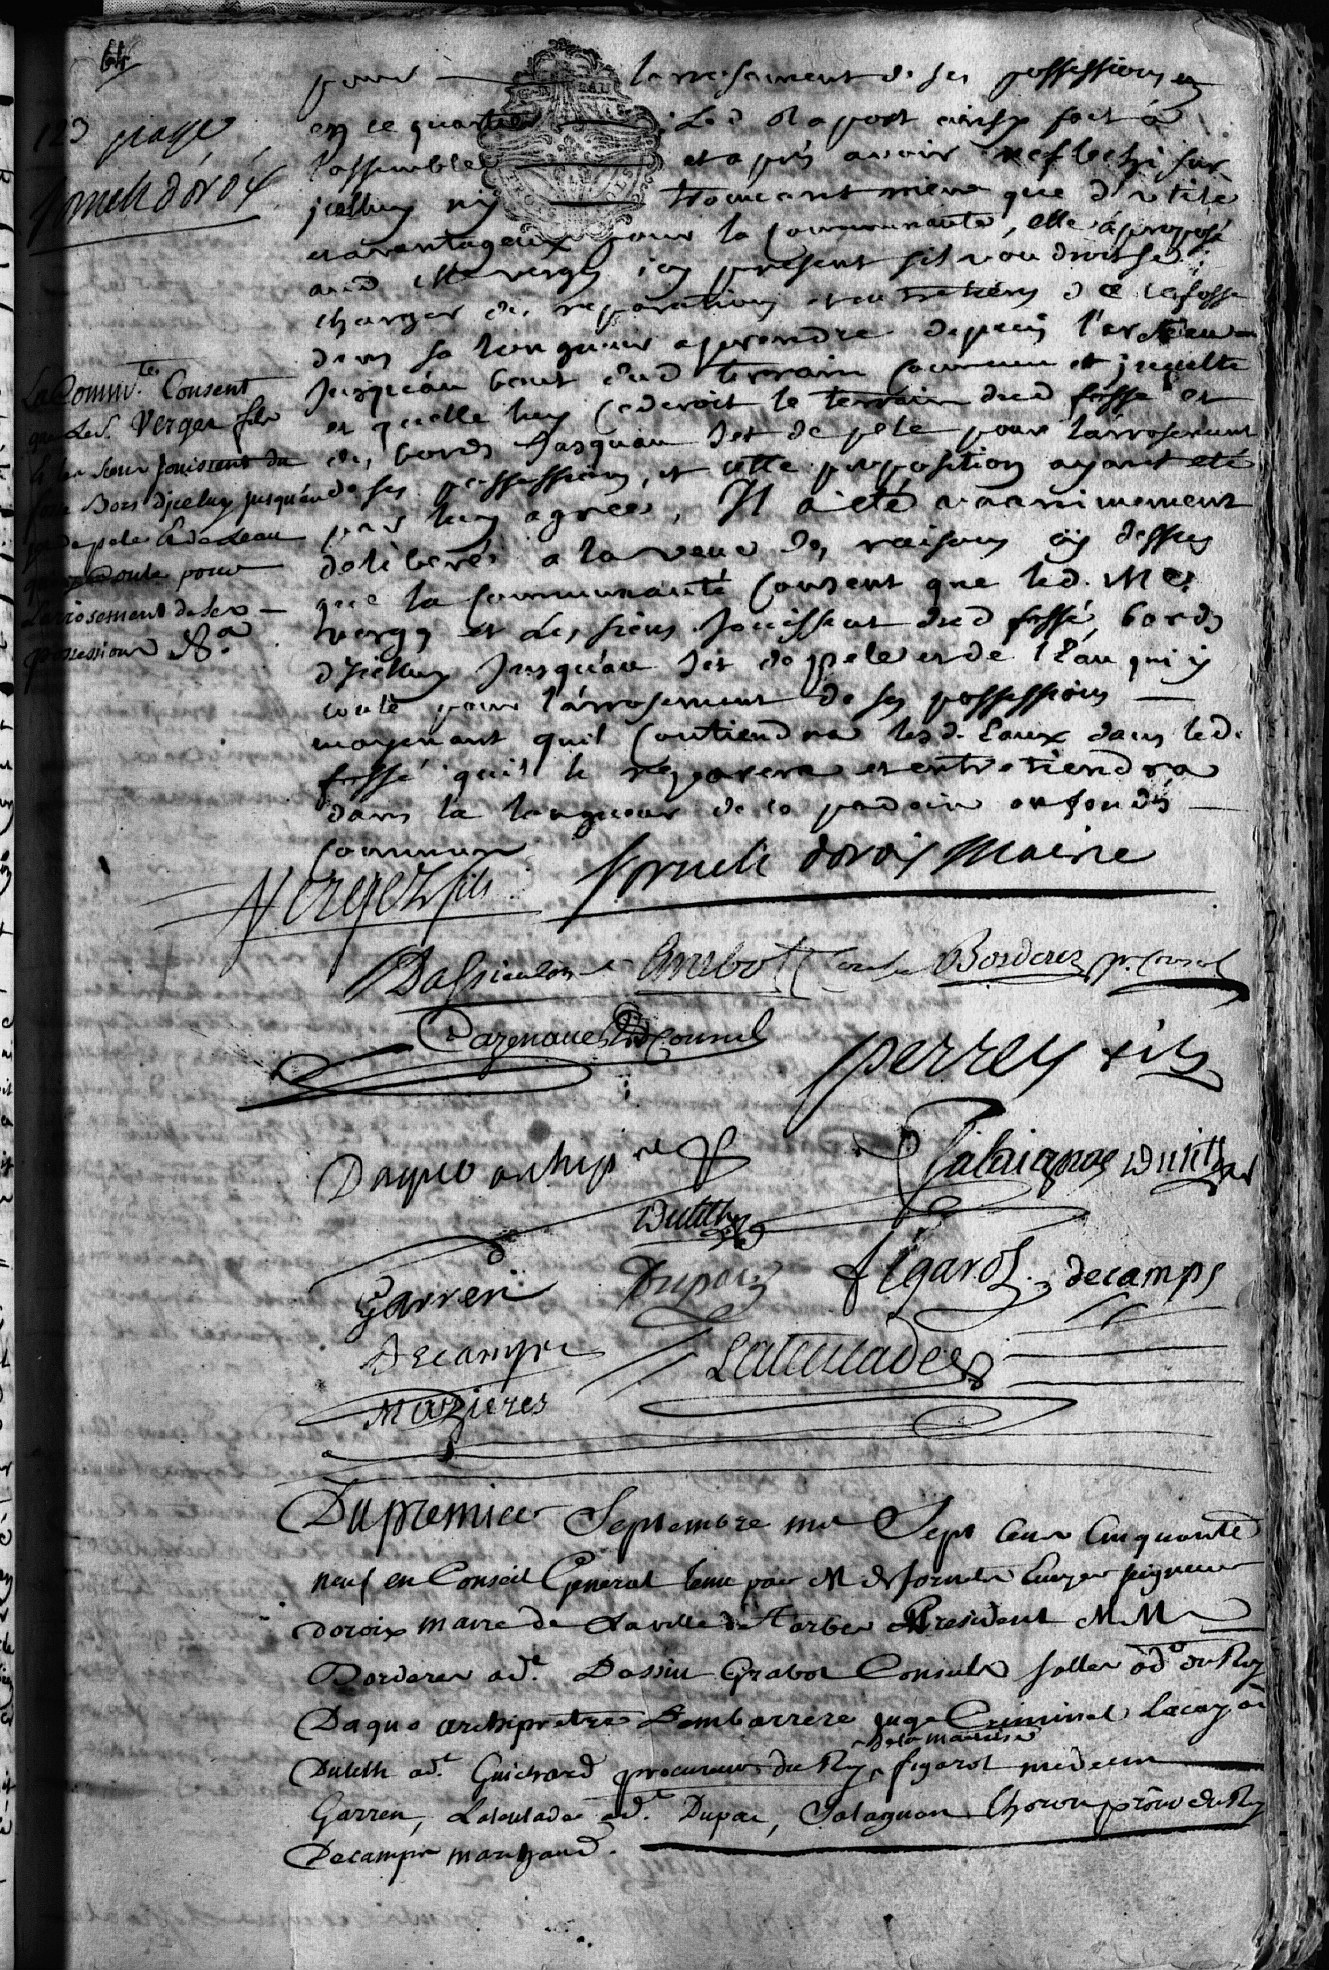 64
123 page
fornets doroix
La Commu.te Consent
que Led. Verges fils
et les siens Jouissent du
fossé Bors d'jceluy jusqu'au
jet de pele et de Leau
pour
Larrosement de ses
possessions &a
pour larrosement de ses possessions
en ce quartier Led. raport ainsy fait à
l'assemblée et aprés avoir reflechi sur
jcelluy n'y trouvant même que d'utile
et avantageux pour la communauté, elle à proposé
aud Me verges icy présent s'il voudroit se
charger des reparations entretiens de ce fossé
dans sa longueur aprendre depuis
Jusqu'au bout dud terrain commun et
et qu'elle luy cederoit le terrain dud fossé et
des bords Jusqu'au Jet de pele pour l'arrosement
de ses possessions, et cette proposition ayant eté
par luy agreée, Il a été unanimement
deliberé a la veue des raisons cy dessus
que la Communauté Consent que led. Me
verges et les siens Jouissent dud fossé, bords
d'Jcelluy Jusqu'au Jet de pele et de l'Eau qui y
coule pour l'arrosement de ses possessions
moyenant quil Contiendra lesd. Eaux dans led.
fossé quil le reparera et entretiendra
dans la longueur de ce padoüin ou fonds
commun
Vergez fils fornets doroix Maire
Grabot Consul Borderes p.r Consul
Cazenave Consul
perrey fils
Daque archip.re
Jalaignon Dutilh
Dutilh
Garren Dupac figarol decamps
Decamps Lateulade
Mazieres
Du premier Septembre mil Sept Cens Cinquante
neuf en Conseil General tenu par M de fornets Ecuyer seigneur
doroix maire de La ville de Tarbes President MM
Borderes ad.t Dassiu Grabot Consuls salles ad.t du Roy
Daque archiprêtre Dembarrere juge Criminel Lacay
de la maitrise
Dutilh ad.t Guichard procureur du Roy, figarol medecin
Garren, Lateulade ad.t Dupac, Jalagnon Theron pr̃eur du Roy
Decamps marchand.